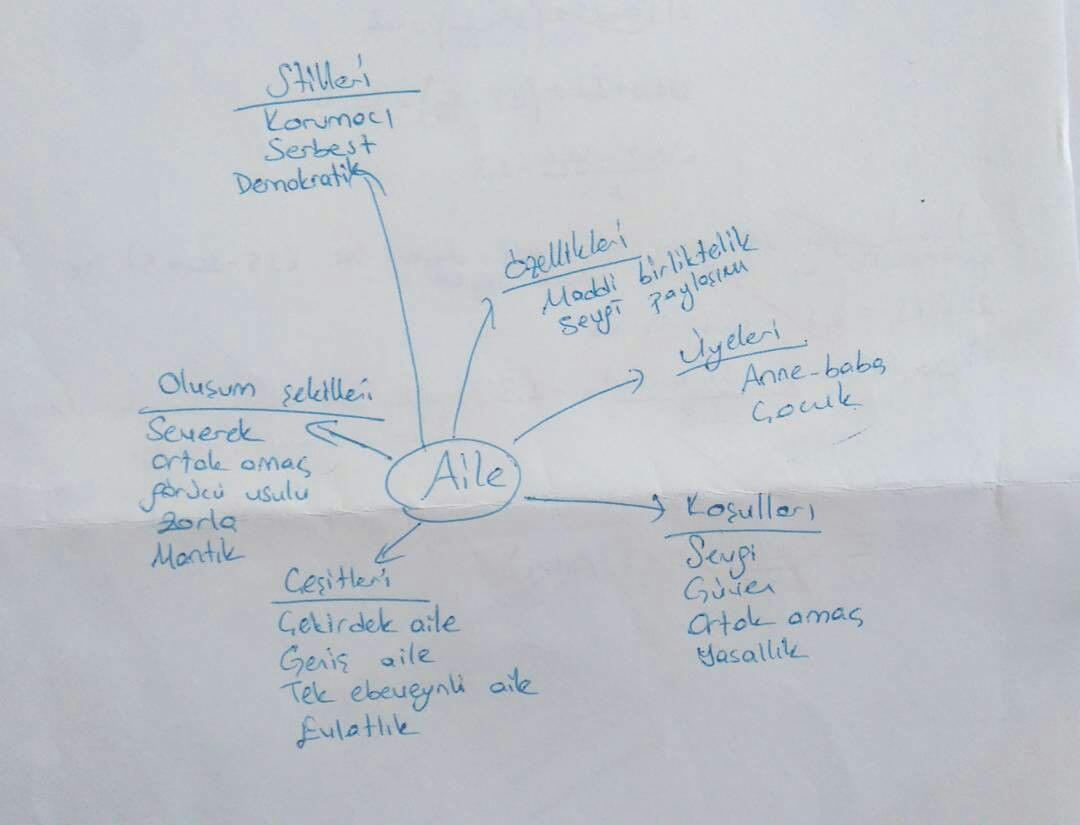 Stilleri
Korumacı
Serbest
Demokratik
Özellikleri
Maddi birliktelik
Sevgi paylaşımı
Üyeleri
Anne-baba
Çocuk
Oluşum şekilleri
Severek
Ortak amaç
görücü usulu
zorla
Mantık
Aile
Koşulları
Sevgi
Güven
Ortak amaç
Yasallık
Çeşitleri
Çekirdek aile
Geniş aile
Tek ebeveynli aile
Evlatlık